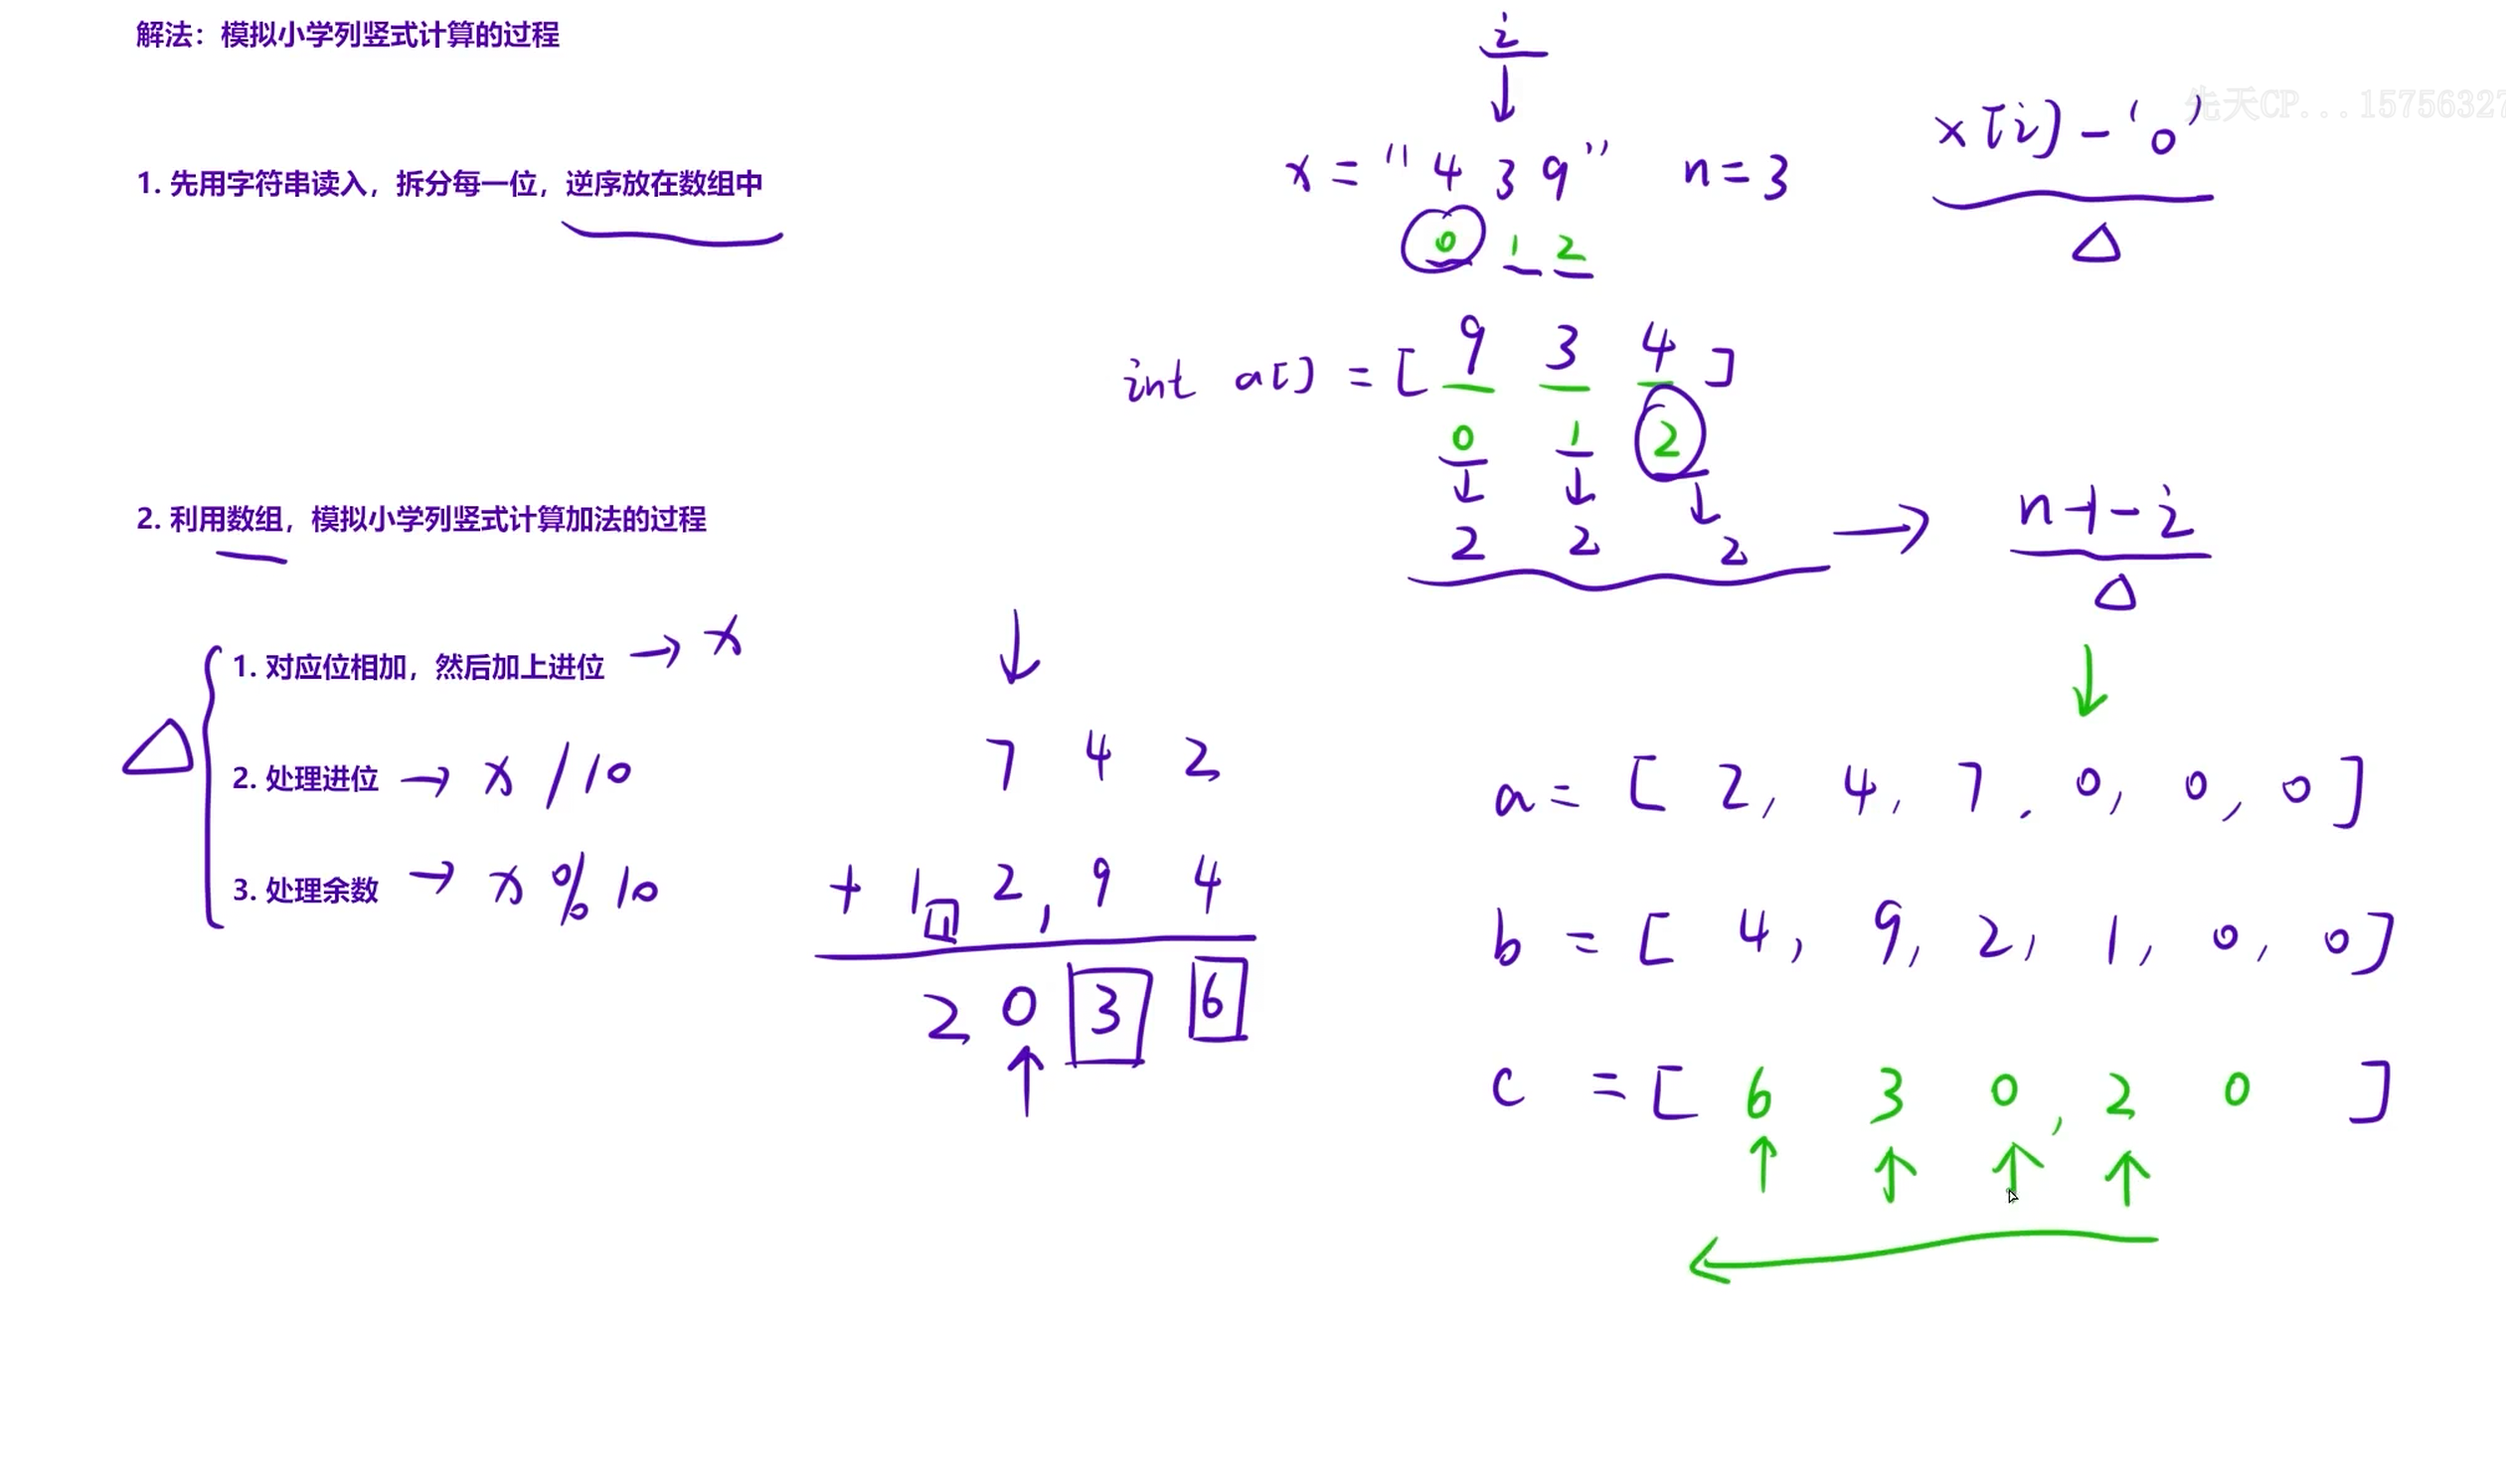 解法：模拟小学列竖式计算的过程
1. 先用字符串读入，拆分每一位，逆序放在数组中
i
x = "4 3 9" n = 3
0 1 2
x[i] - '0'
先天CP...1575632
int a[] = [ 9 3 4 ]
0 1 2
2 2 2 → n-1-i
2. 利用数组，模拟小学列竖式计算加法的过程
1. 对应位相加，然后加上进位 → x
2. 处理进位 → x / 10
3. 处理余数 → x % 10
7 4 2
+ 1 2 9 4
2 0 3 6
a = [ 2, 4, 7, 0, 0, 0 ]
b = [ 4, 9, 2, 1, 0, 0 ]
c = [ 6 3 0, 2 0 ]